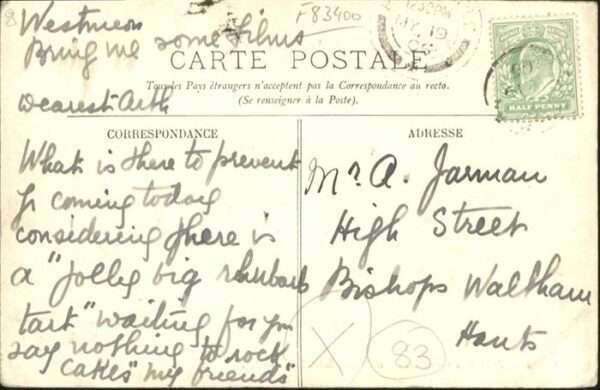 8
F83400
Westmeon
Bring me some films
MY 19
HALF PENNY
CARTE POSTALE
Tous les Pays étrangers n'acceptent pas la Correspondance au recto.
(Se renseigner à la Poste).
Dearest Arth
CORRESPONDANCE
What is there to prevent
yr coming today
considering there is
a "jolly big rhubarb
tart" waiting for you
say nothing to rock
cakes "my friends"
ADRESSE
Mr. A. Jarman
High Street
Bishops Waltham
Hants
X
83